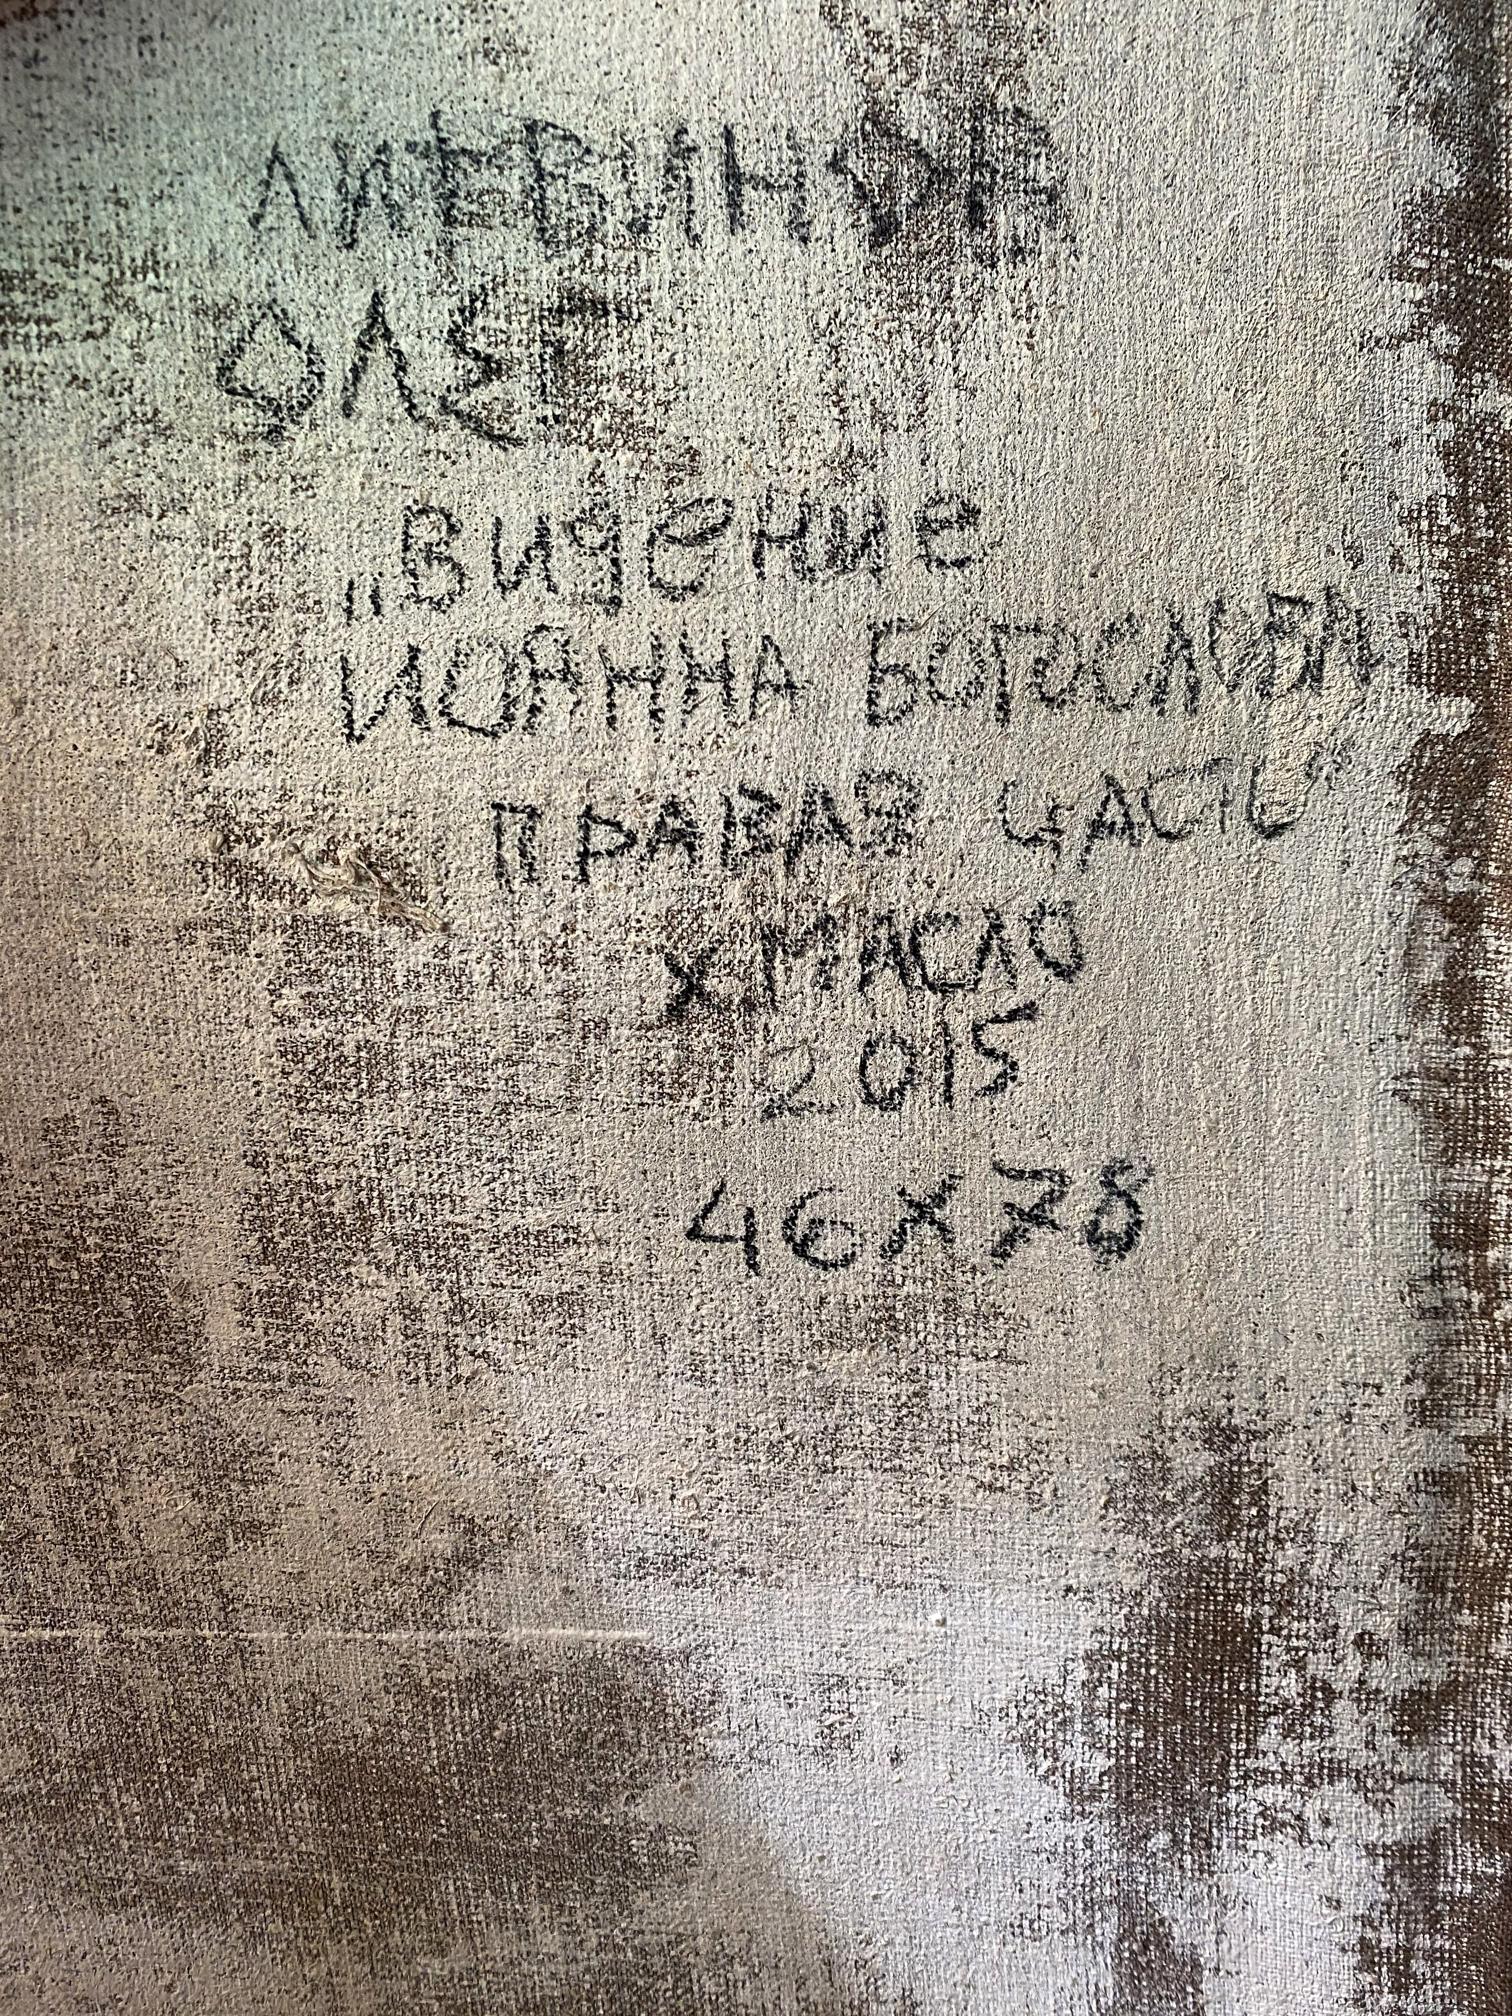 ЛИТВИНОВ
ОЛЕГ
„Видение
ИОАННА БОГОСЛОВА
ПРАВАЯ ЧАСТЬ"
Х МАСЛО
2015
46 х 78